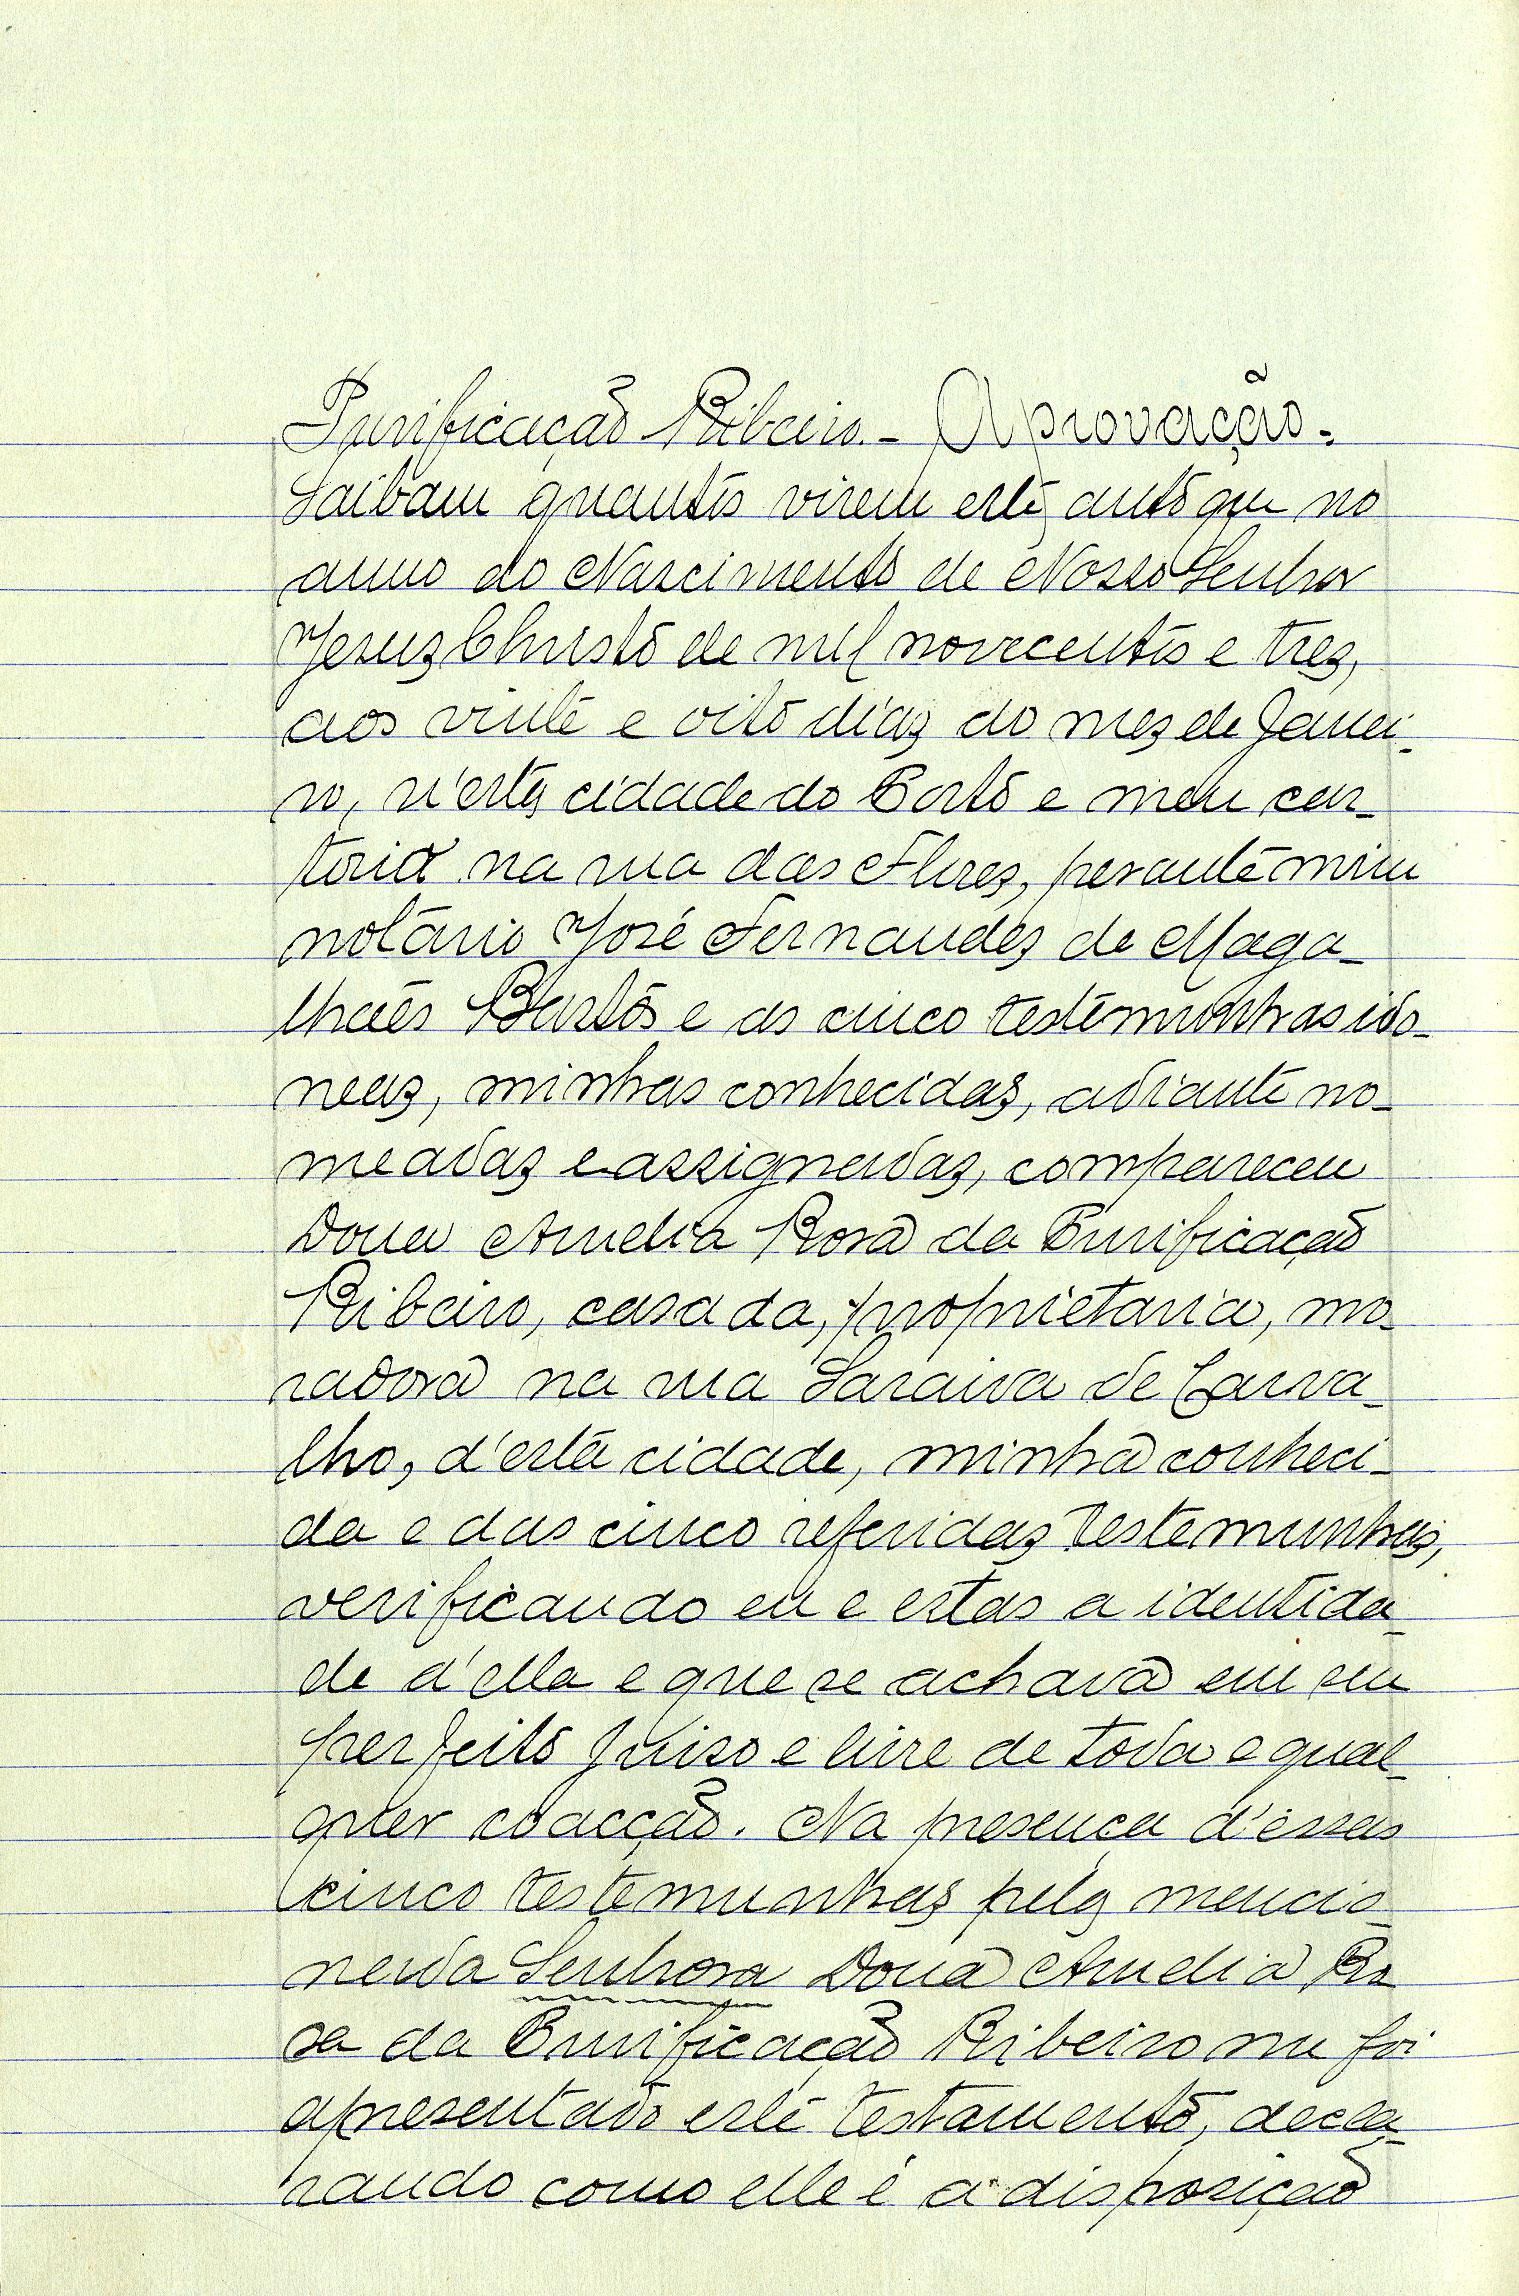 Purificação Ribeiro. - Aprovação.
Saibam quantos virem este auto que no
anno do Nascimento de Nosso Senhor
Jesuz Christo de mil novecentos e trez,
aos vinte e oito diaz do mez de Janei-
ro, n'esta cidade do Porto e meu car-
torio na rua das Florez, perante mim
notario José Fernandez de Maga-
lhaēs Bastos e as cinco testemunhas ido-
neaz, minhas conhecidaz, adiante no-
meadaz e assignadaz, compareceu
Dona Amelia Rosa da Purificação
Ribeiro, casada, proprietaria, mo-
radora na rua Saraiva de Carva-
lho, d'esta cidade, minha conheci-
da e das cinco referidaz testemunhaz,
verificando eu e estas a identida-
de d'ella e que se achava em seu
perfeito juiso e livre de toda e qual-
quer coacção. Na presença d'essas
cinco testemunhaz pela mencio-
nada Senhora Dona Amelia Ro
sa da Purificação Ribeiro me foi
apresentado este testamento, decla-
rando como elle é a disposição